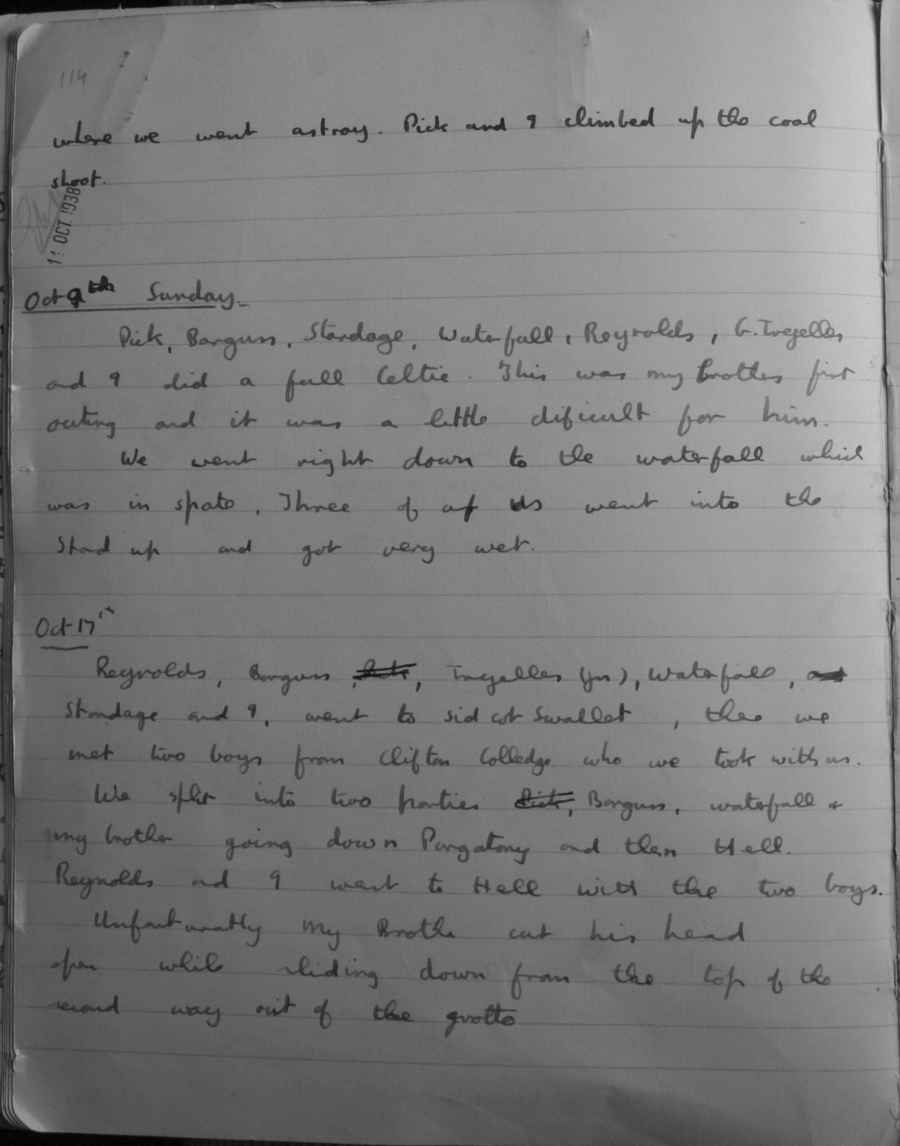 114
where we went astray. Pick and I climbed up the coal
shoot.
11 OCT 1938
Oct 9th Sunday
Pick, Barguss, Standage, Waterfall, Reynolds, G. Tregelles
and I did a full Celtic. This was my Brothers first
outing and it was a little dificult for him.
We went right down to the waterfall which
was in spate. Three of us went into the
Stand up and got very wet.
Oct 17th
Reynolds, Barguss, Tregelles (jn), Waterfall,
Standage and I, went to Sidcot Swallet, there we
met two boys from Clifton Colledge who we took with us.
We split into two parties Barguss, waterfall +
my brother going down Purgatory and then Hell.
Reynolds and I went to Hell with the two boys.
Unfortunatly my Brother cut his head
open while sliding down from the top of the
second way out of the grotto